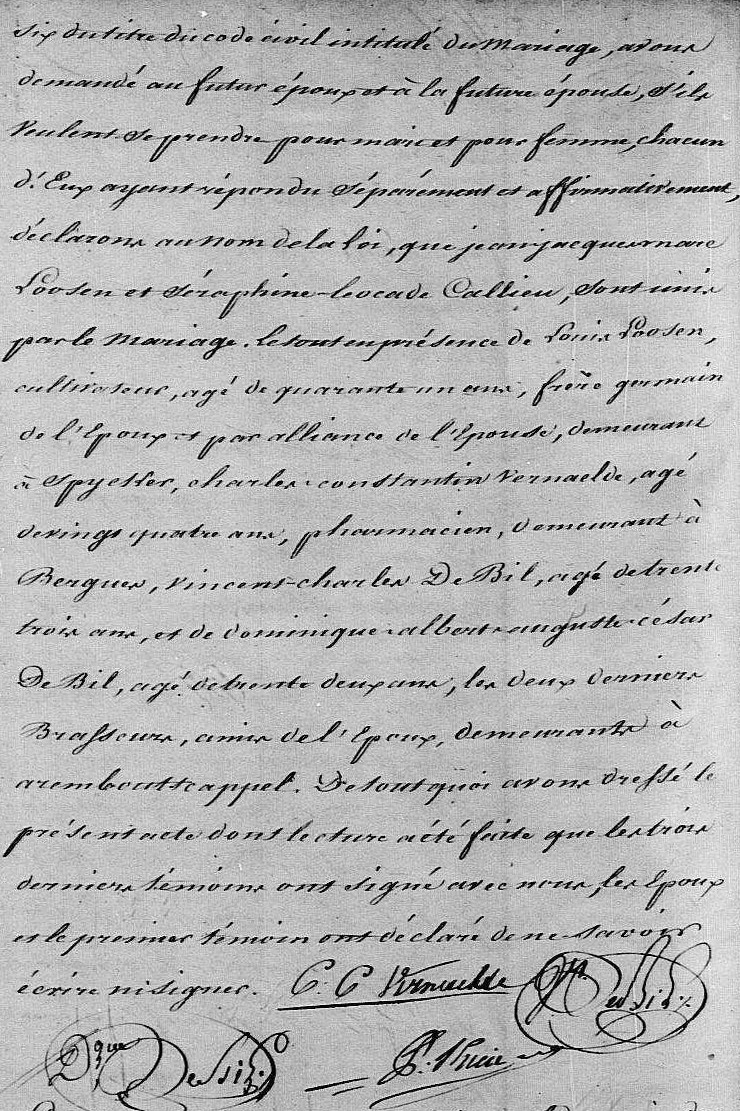 six du titre du code civil intitulé du Mariage, avons
demandé au futur époux et à la future épouse, s'ils
veulent se prendre pour mari et pour femme, chacun
d'Eux ayant répondu séparément et affirmativement,
déclarons au nom de la loi, que jean jacques marc
Loosen et Séraphine-leocade Callieu, sont unis
par le Mariage. le tout en présence de Louis Loosen,
cultivateur, agé de quarante un ans, frère germain
de l'Epoux et par alliance de l'Epouse, demeurant
à Spycker, charles-constantin Vernaelde, agé
de vingt quatre ans, pharmacien, demeurant à
Bergues, vincent-charles De Bil, agé de trente
trois ans, et de dominique-albert-auguste-césar
De Bil, agé de trente deux ans, les deux derniers
Brasseurs, amis de l'Epoux, demeurants à
arembouttscappel. De tout quoi avons dressé le
présent acte dont lecture a été faite que les trois
derniers témoins ont signé avec nous, les Epoux
et le premier témoin ont déclaré de ne savoir
écrire ni signer. C. C Vernaelde
Dque